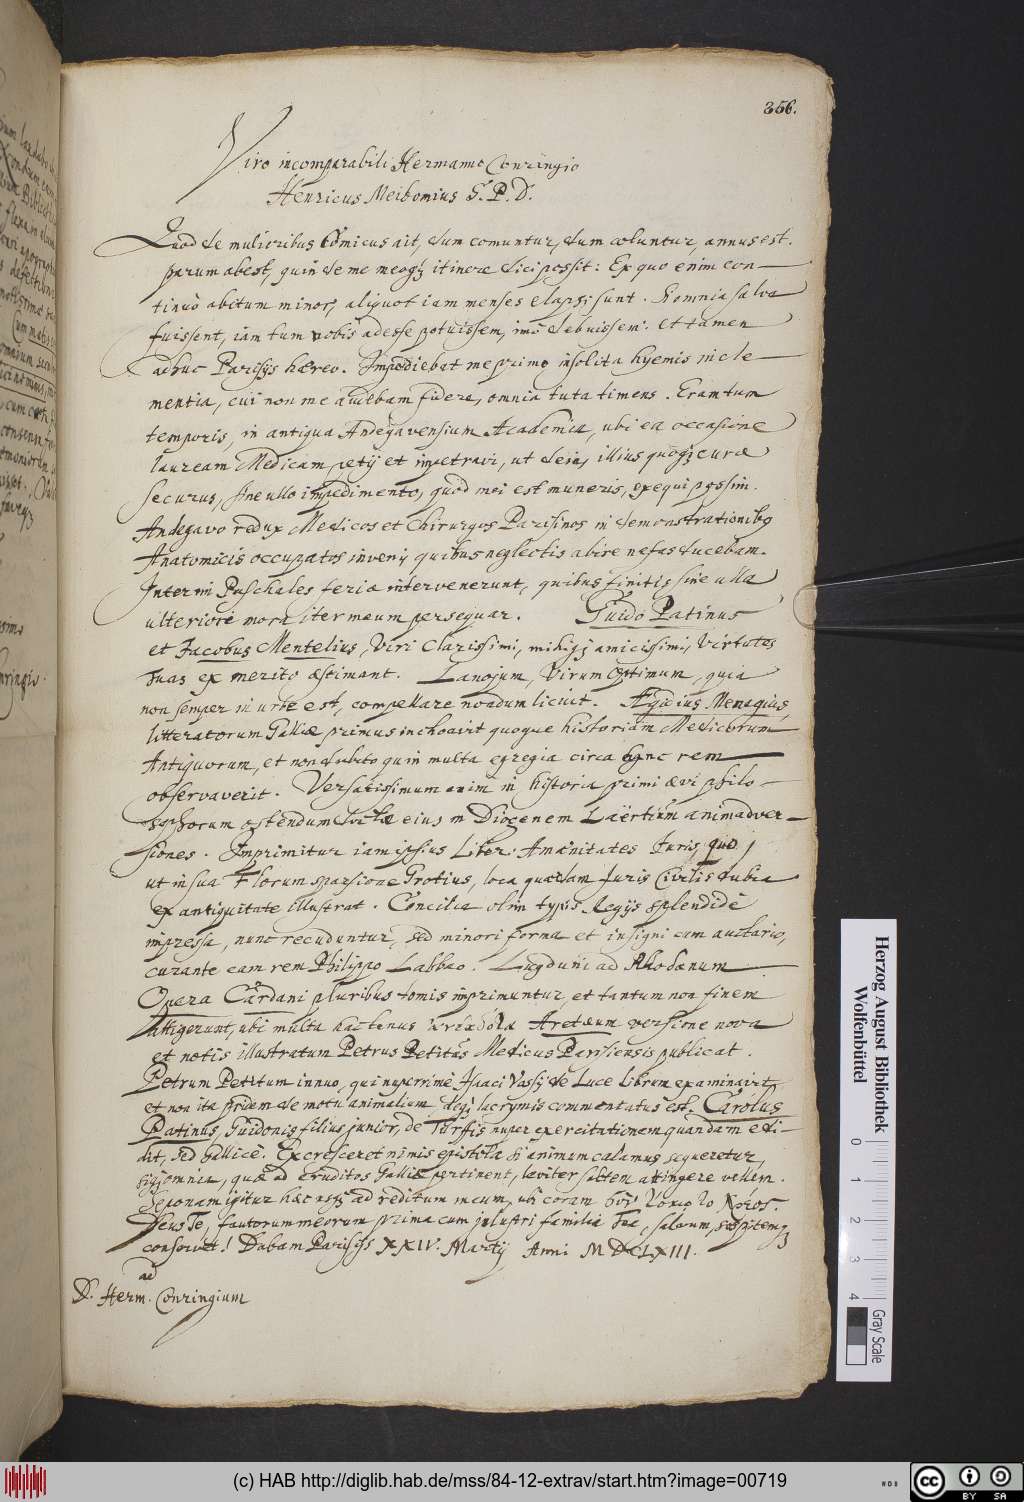 356.
Viro incomparabili Hermanno Conringio
Henricus Meibomius S. P. D.
Quod de mulieribus Comicus ait, dum comuntur, dum coluntur, annus est.
parum abest, quin de me meoq; itinere dici possit: Ex quo enim con-
tinuò abitum minor, aliquot iam menses elapsi sunt. Si omnia salva
fuissent, iam tum vobis adesse potuissem, imò debuissem: et tamen
adhuc Parisijs hæreo. Impediebat me primo insolita hyemis incle-
mentia, cui non me audebam fidere, omnia tuta timens. Eram tum
temporis, in antiqua Andegavensium Academia, ubi ea occasione
lauream Medicam petij et impetravi, ut dein, illius quoq; curæ
securus, sine ullo impedimento, quod mei est muneris, exequi possim.
Andegavo redux Medicos et Chirurgos Parisinos in demonstrationibq
Anatomicis occupatos inveni, quibus neglectis abire nefas ducebam.
Interim Paschales feriæ intervenerunt, quibus finitis sine ulla
ulteriori mora iter meum persequar. Guido Patinus
et Jacobus Mentelius, Viri Clarissimi, mihiq; amicissimi, virtutes
tuas ex merito æstimant. Lanojum, Virum optimum, quia
non semper in urbe est, compellare nondum licuit. Ægidius Menagius,
litteratorum Galliæ primus inchoavit quoque historiam Medicorum
Antiquorum, et non dubito quin multa egregia circa hanc rem
observaverit. Versatissimum enim in historia primi ævi philo-
sophorum ostendum doctæ eius in Diogenem Laërtium animadver-
siones. Imprimitur iam ipsius Liber: Amœnitates Juris, quo,
ut in sua Florum sparsione Grotius, loca quædam Juris Civilis dubia
ex antiquitate illustrat. Concilia olim typis Regijs splendidè
impressa, nunc recuduntur, sed minori forma et insigni cum auctario,
curante eam rem Philippo Labbæo. Lugduni ad Rhodanum
Opera Cardani pluribus tomis imprimuntur, et tantum non finem
attigerunt, ubi multa hactenus ἀνέκδοτα Aretæum versione nova
et notis illustratum Petrus Petitus Medicus Parisiensis publicat.
Petrum Petitum innuo, qui nuperrime Isaaci Vossij de Luce librum examinavit,
et non ita pridem de motu animalium deq; lacrymis commentatus est. Carolus
Patinus, Guidonis filius junior, de Turffis nuper exercitationem quandam edi-
dit, sed Gallicè. Excresceret nimis epistola si animum calamus sequeretur,
siq; omnia, quæ ad eruditos Galliæ pertinent, leviter saltem attingere vellem.
Seponam igitur hæc usq; ad reditum meum, ubi coram
Deus Te, fautorum meorum prima cum jnlustri familia Tua, salvum, sospitemq;
conservet! Dabam Parisijs XXIV. Martij Anni MDCLXIII.
ad
D. Herm. Conringium
Herzog August Bibliothek
Wolfenbüttel
0 1 2 3 4
Gray Scale
(c) HAB http://diglib.hab.de/mss/84-12-extrav/start.htm?image=00719
cc BY SA